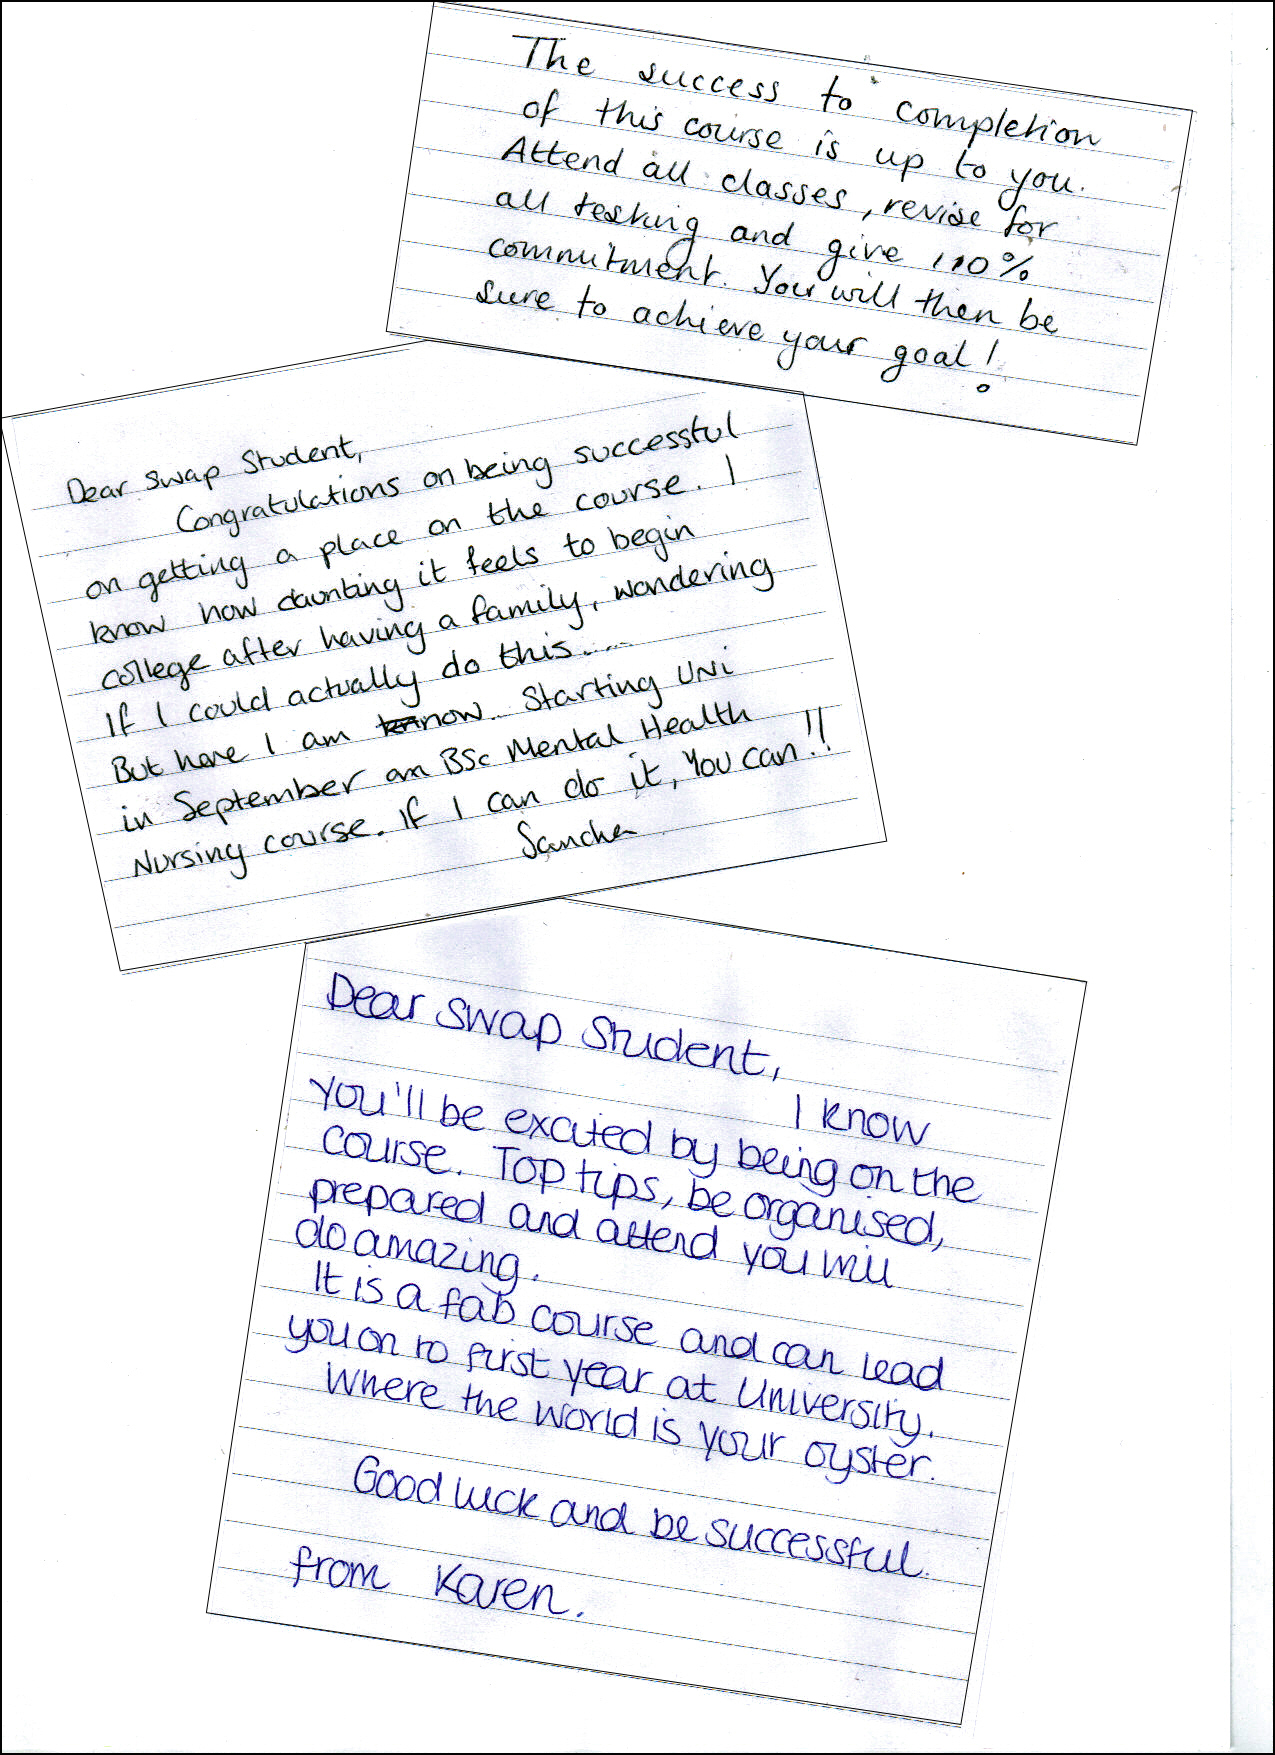 The success to completion
of this course is up to you.
Attend all classes, revise for
all testing and give 110%
commitment. You will then be
sure to achieve your goal!
Dear Swap Student,
Congratulations on being successful
on getting a place on the course. I
know how daunting it feels to begin
college after having a family, wondering
If I could actually do this....
But here I am now. Starting UNi
in September on BSc Mental Health
Nursing course. If I can do it, You can!!
Dear SWAP Student,
I know
you'll be excited by being on the
course. Top tips, be organised,
prepared and attend you will
do amazing.
It is a fab course and can lead
you on to first year at University.
Where the world is your oyster.
Good luck and be successful.
from Karen.